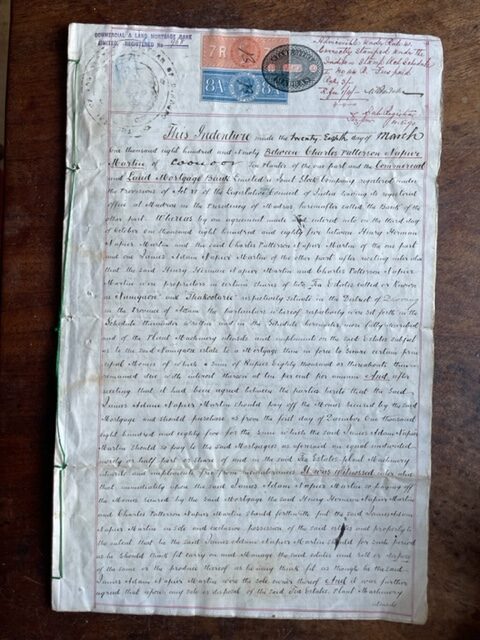 COMMERCIAL & LAND MORTGAGE BANK
LIMITED. REGISTERED No
7 R
8A 8A
Admissible under Rule
correctly stamped under the
Indian Stamp Act Schedule
I No
Sub Registrar
This Indenture made the twenty Eighth day of March
One thousand eight hundred and Ninety Between Charles Patterson Napier
Martin of Coonoor Tea Planter of the one part and the Commercial
and Land Mortgage Bank Limited a Joint Stock Company registered under
the Provisions of Act VI of the Legislative Council of India having its registered
office at Madras in the Presidency of Madras hereinafter called the Bank of the
other part. Whereas by an agreement made & entered into on the third day
of October one thousand eight hundred and eighty five between Henry Herman
Napier Martin and the said Charles Patterson Napier Martin of the one part
and one James Adam Napier Martin of the other part after reciting inter alia
that the said Henry Herman Napier Martin and Charles Patterson Napier
Martin were proprietors in certain shares of two Tea Estates called or known
as and respectively situate in the District of
in the Province of Assam the particulars whereof respectively were set forth in the
Schedule thereunder written and in the Schedule hereunder more fully described
and of the Plant Machinery utensils and implements on the said Estates subject
as to the said estate to a Mortgage then in force to secure certain prin
cipal Monies of which a sum of Rupees Eighty thousand or thereabouts then
remained due with interest thereon at ten per cent per annum And after
reciting that it had been agreed between the parties hereto that the said
James Adam Napier Martin should pay off the Monies secured by the said
Mortgage and should purchase as from the first day of December One thousand
eight hundred and eighty five for the sum which the said James Adam Napier
Martin should so pay to the said Mortgagees as aforesaid an equal undivided
moiety or half part or share of and in the said Tea Estates Plant Machinery
utensils and implements free from incumbrances It was witnessed inter alia
that immediately upon the said James Adam Napier Martin so paying off
the Monies secured by the said Mortgage the said Henry Herman Napier Martin
and Charles Patterson Napier Martin should forthwith put the said James Adam
Napier Martin in sole and exclusive possession of the said estates and property to
the intent that he the said James Adam Napier Martin should for such period
as he should think fit carry on and Manage the said estates and sell or dispose
of the same or the produce thereof as he may think fit as though he the said
James Adam Napier Martin were the sole owner thereof And it was further
agreed that upon any sale or disposal of the said Tea Estates Plant Machinery